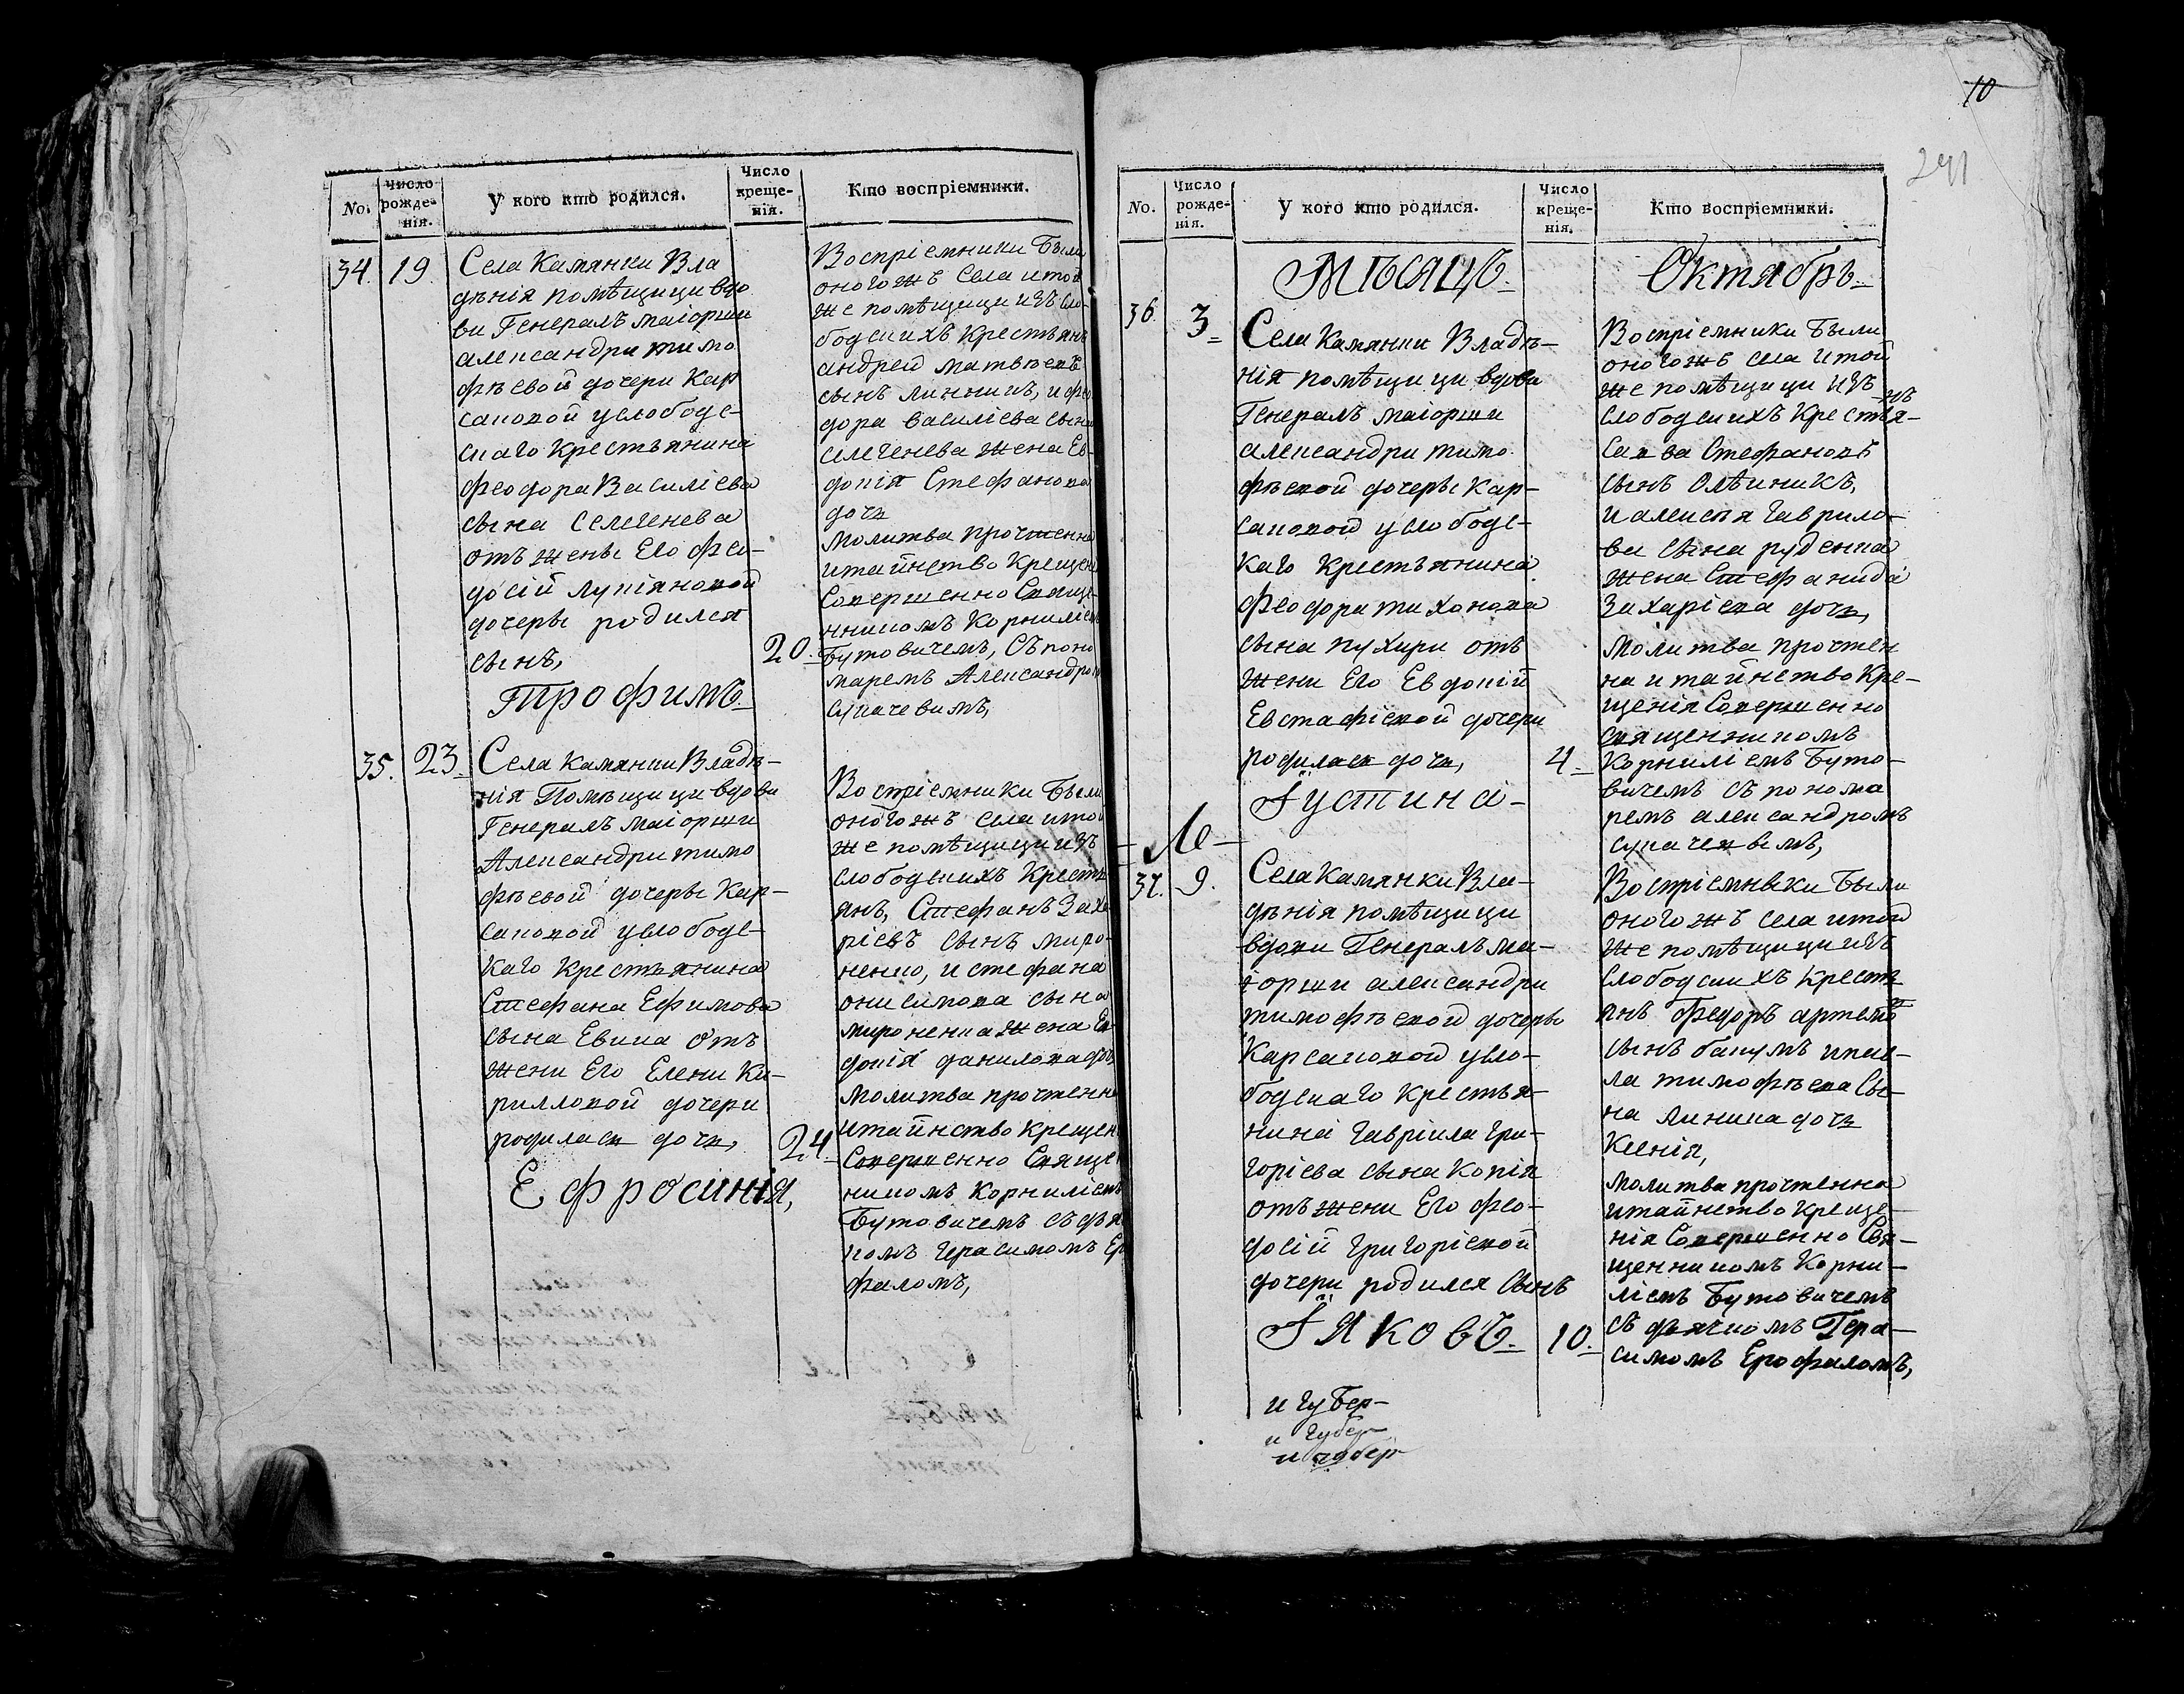 10
291
No. Число рожде-нія. У кого кто родился. Число креще-нія. Кто воспріемники.
34. 19.
Села Камянки Вла
дѣнія помѣщици вдо
ви Генералъ маіорши
александри тимо
фѣевой дочери Кар
саковой услободс-
каго Крестьянина
Феодора Василіева
сына Селегенева
отъ жены Его Фео-
досій лукіяновой
дочеры родился
сынъ,
Трофимъ.
20.
Воспріемники были
оногожъ села итой
же помѣщици изъ сло-
бодскихъ Крестьянъ
андрей матвѣевъ
сынъ линникъ, и фео
дора василіева сына
селегенева жена Ев-
докія Стефанова
дочь
молитва прочтенна
итайнство Крещен
Совершенно Свяще-
нникомъ Корниліемъ
Бутовичемъ, Съ поно
маремъ Александром
сукачевимъ,
35. 23.
Села Камянки Владѣ-
нія Помѣщици вдови
Генералъ маіорши
Александри тимо
фѣевой дочеры Кар-
саковой услободс-
каго Крестьянина
Стефана Ефимова
сына Евина Отъ
жени Его Елени Ки-
рилловой дочери
родилася дочь,
24.
Ефросинія,
Воспріемники Были
оногожъ села итой
же помѣщици изъ
слободскихъ Кресть
янъ, Стефанъ Заха
ріевъ сынъ миро-
ненко, и стефана
онисимова сына
мироненка жена Ев
докія данилова доч
молитва прочтенна
итайнство крещен
Совершенно Священ
никомъ Корниліемъ
Бутовичемъ съ дья
комъ Герасимомъ Ер
фаломъ,
No. Число рожде-нія. У кого кто родился. Число креще-нія. Кто воспріемники.
Мѣсяцъ. Октябрь.
36 3
Села Камянки Владѣ-
нія помѣщици вдови
Генералъ маіорши
александри тимо
фѣевой дочеры Кар-
саковой услободс-
каго крестьянина
Феодора тихонова
сына пухири отъ
жени Его Евдокій
Евстафіевой дочери
родилася дочь,
4
Іустина-
Воспріемники Были
оногожъ села итой
же помѣщици изъ
слободскихъ Крестья-нъ
Савва Стефановъ
сынъ Олѣйникъ,
и алексѣя гаврило-
ви сына руденка
жена Стефанида
Захаріева дочь,
молитва прочтен
на итайнство Кре-
щенія Совершенно
священникомъ
Корниліемъ Буто-
вичемъ съ понома
ремъ александромъ
сукачевимъ,
37. 9.
Села Камянки Вла-
дѣнія помѣщици
вдови Генералъ ма-
іорши александри
тимофѣевой дочеры
Карсаковой усло-
бодскаго Крестья-
нина гавріила гри-
горіева сына копія
отъ жени Его Фео-
досій григоріевой
дочери родился сынъ
Іяковъ. 10.
Воспріемнѣки Были
оногожъ села итой
же помѣщици изъ
слободскихъ кресть
янъ Федоръ артемов
сынъ бакумъ ипав-
ла тимофѣева Сы-
на линика дочь
Ксенія,
молитва прочтенна
итайнство креще-
нія Совершенно Свя-
щенникомъ Корни-
ліемъ Бутовичемъ
съ дьячкомъ Гера-
симомъ Ерофаломъ,
и губер-
и губер
и губер